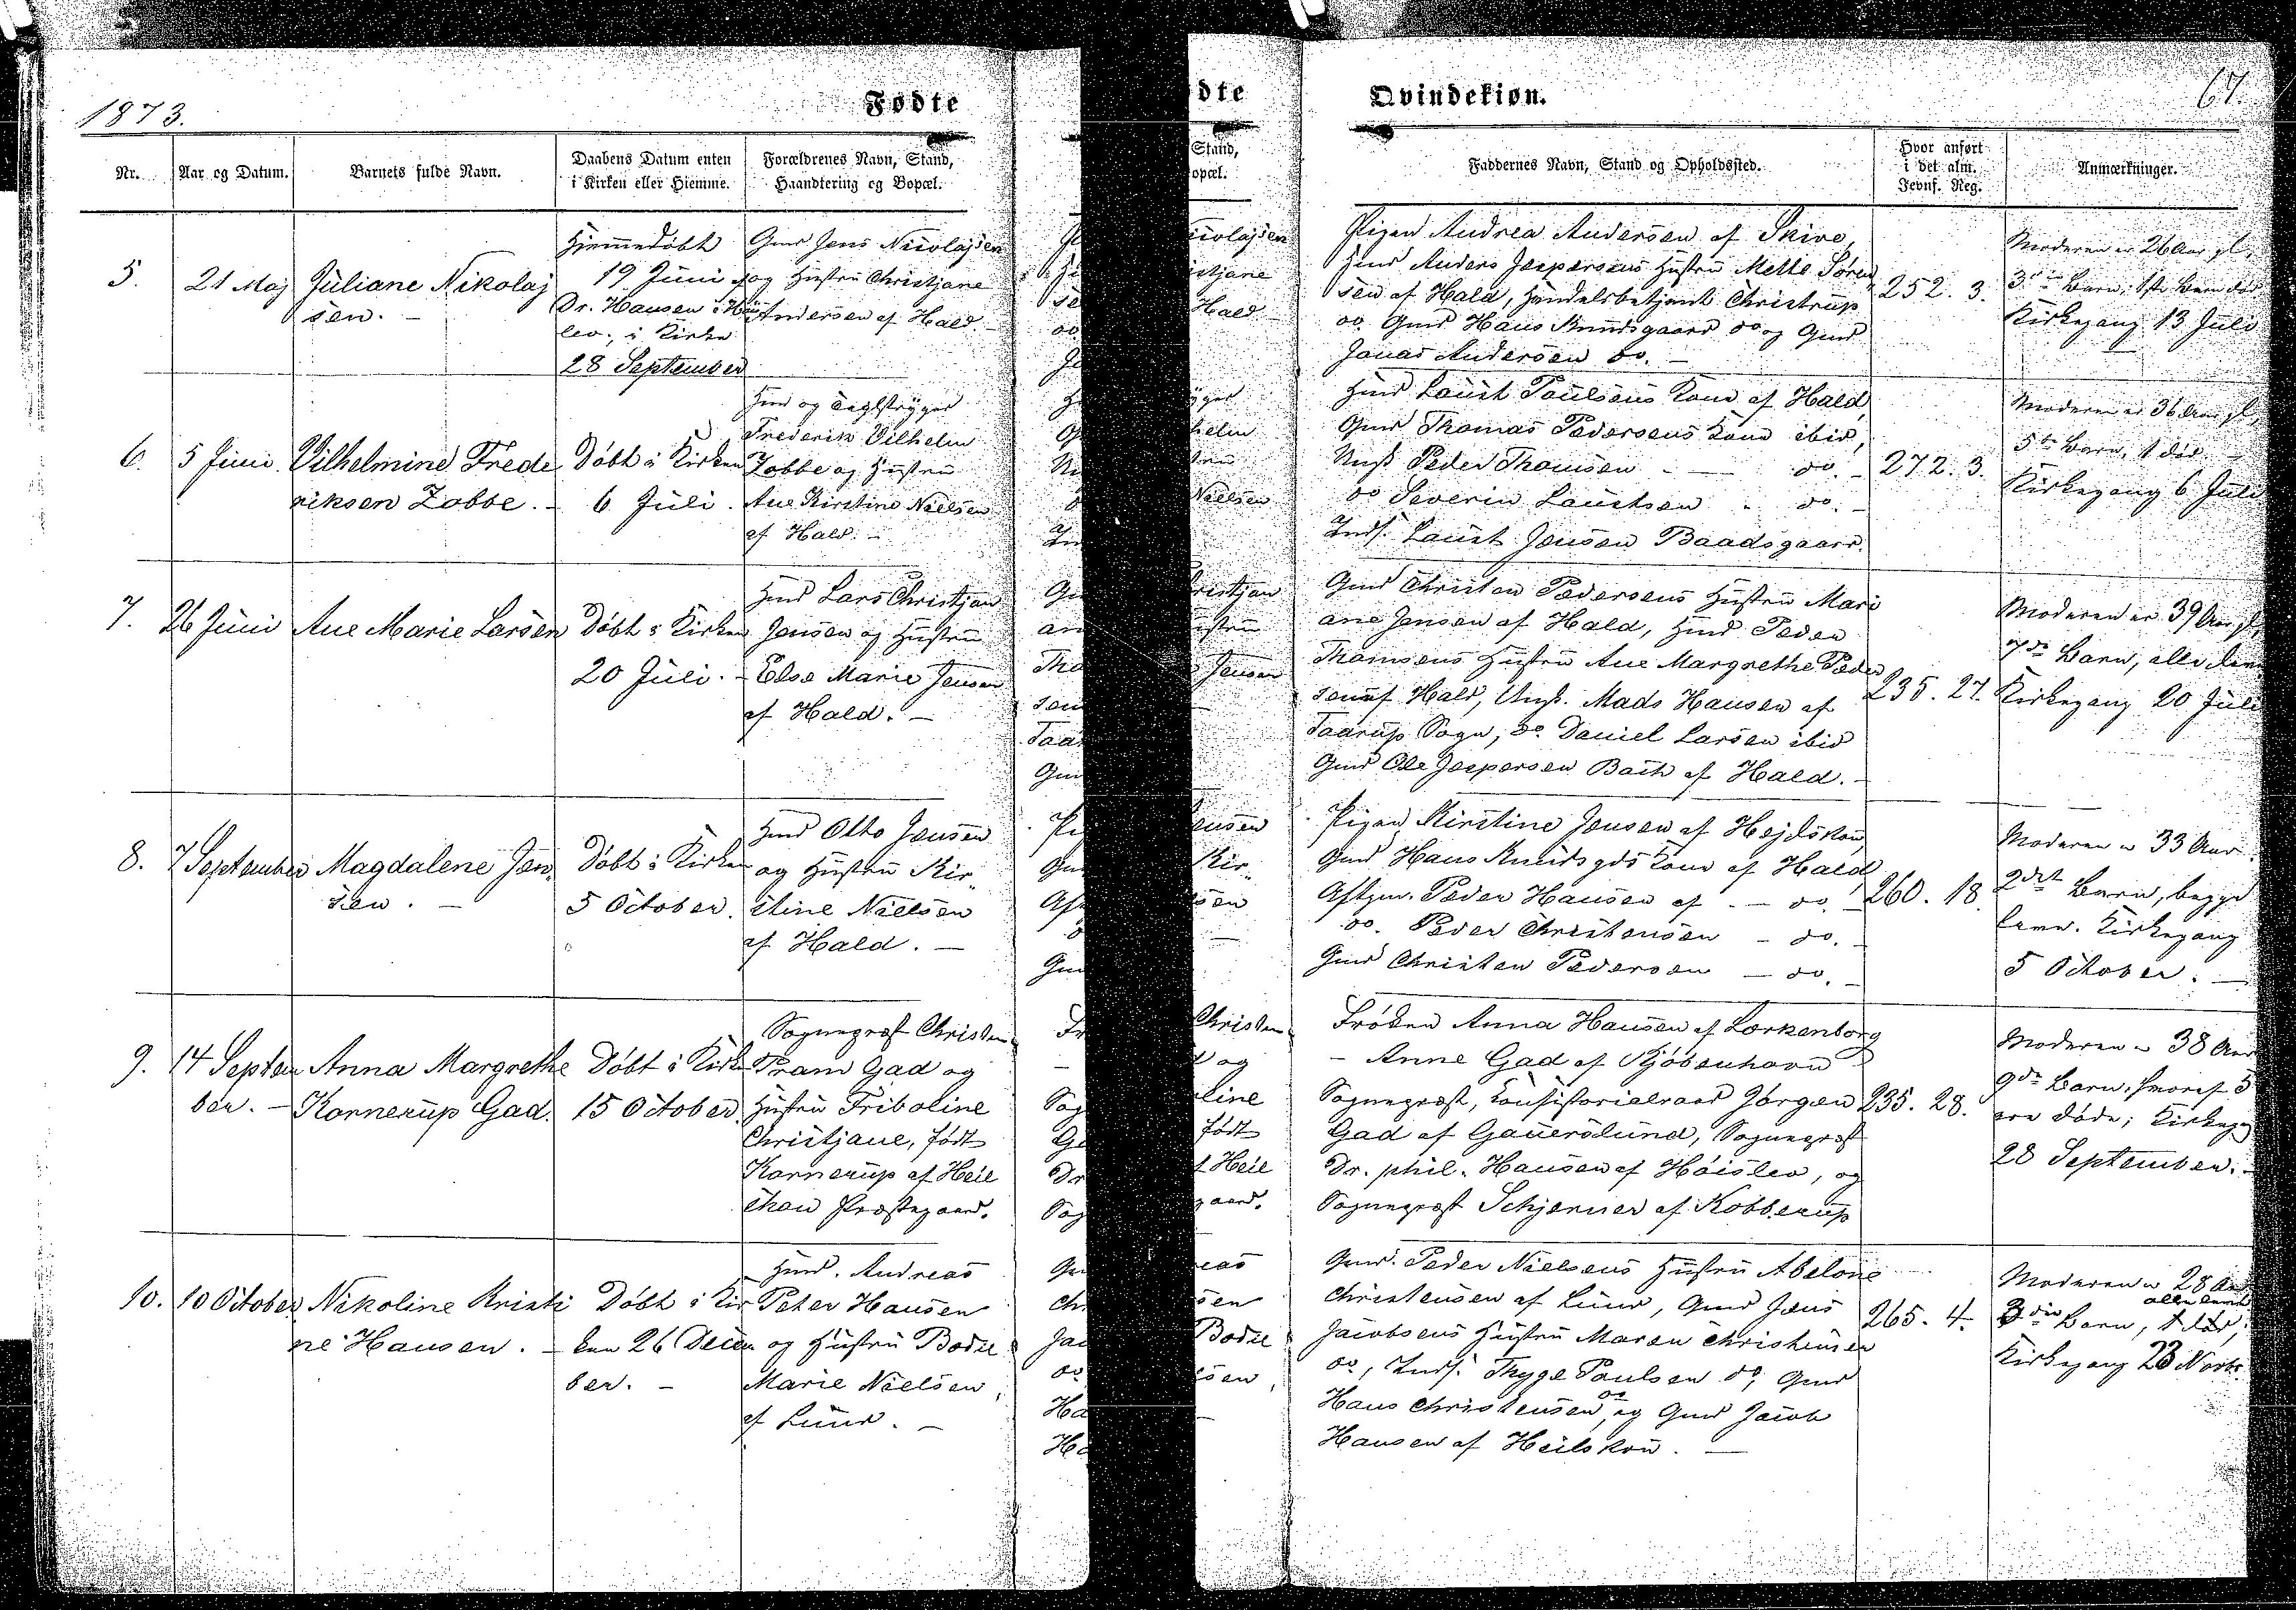 1873.
Fødte
Nr.
Aar og Datum.
Barnets fulde Navn.
Daabens Datum enten
i Kirken eller Hjemme.
Forældrenes Navn, Stand,
Haandtering og Bopæl.
5.
21 Maj
Juliane Nikolaj
sen. -
Hjemmedöbt
19 Juni
Dr. Hansen i
lev, i Kirke
28 September
Gmd Jens Nicolajsen
og Hustru Christjane
Andersen af Hald. -
6.
5 Juni
Vilhelmine Frede
riksen Zobbe. -
Döbt i Kirken
6 Juli.
Hmd og Teglstryger
Frederik Vilhelm
Zobbe og Hustru
Ane Kirstine Nielsen
af Hald. -
7.
26 Juni
Ane Marie Larsen
Döbt i Kirken
20 Juli. -
Hmd Lars Christjan
Jensen og Hustru
Else Marie Jensen
af Hald. -
8.
7 September
Magdalene Jen,
sen. -
Döbt i Kirken
5 October.
Hmd Otto Jensen
og Hustru Kir,,
stine Nielsen
af Hald. -
9.
14 Septem
ber. -
Anna Margrethe
Kornerup Gad.
Döbt i Kirke
15 October.
Sognepræst Christen
Pram Gad og
Hustru Friboline
Christjane, födt
Kornerup af Heil
skou Præstegaard.
10.
10 October
Nikoline Kristi
ne Hansen. -
Döbt i Kir
ken 26 Decem
ber. -
Hmd. Andreas
Peter Hansen
og Hustru Bodil
Marie Nielsen,
af Lund. -
dte
Qvindekiøn.
67
Stand,
opæl.
Faddernes Navn, Stand og Opholdssted.
Hvor anført
i det alm.
Jevnf. Reg.
Anmærkninger.
Pigen Andrea Andersen af Skive,
Hmd Anders Jespersens Hustru Mette Sören
sen af Hald, Handelsbetjent Christrup
do. Gmd Hans Knudsgaard do og Gmd
Jonas Andersen do. -
252. 3.
Moderen er 26 Aar gl,
3die Barn, 1ste Barn död
Kirkegang 13 Juli
Hmd Laust Poulsens Kone af Hald,
Gmd Thomas Pedersens Kone ibid,
Ungk Peder Thomsen - do. -
do Severin Laustsen - do. -
Inds. Laust Jensen Baadsgaard.
272. 3.
Moderen er 36 Aar gl,
5te Barn, 1 död -
Kirkegang 6 Juli
Gmd Christen Pedersens Hustru Mari
ane Jensen af Hald, Hmd Peder
Thomsens Hustru Ane Margrethe Peder
sen af Hald, Ungk. Mads Hansen af
Taarup Sogn, do Daniel Larsen ibid
Gmd Ole Jespersen Bach af Hald. -
235. 27.
Moderen er 39 Aar gl,
7de Barn, alle leve
Kirkegang 20 Juli
Pigen Kirstine Jensen af Hejlskou
Gmd Hans Knudsgds Kone af Hald,
Aftgm. Peder Hansen af - do. -
do. Peder Christensen - do. -
Gmd Christen Pedersen - do. -
260. 18.
Moderen er 33 Aar.
2det Barn, begge
leve. Kirkegang
5 October. -
Fröken Anna Hansen af Lorkenborg
- Anne Gad af Kjöbenhavn
Sognepræst, Consistorialraad Jörgen
Gad af Gauerslund, Sognepræst
Dr. phil. Hansen af Höislev, og
Sognepræst Schjerner af Kobberup
235. 28.
Moderen er 38 Aar
9de Barn, hvoraf 3
ere döde; Kirkegg
28 September. -
Gmd. Peder Nielsens Hustru Abelone
Christensen af Lund, Gmd Jens
Jacobsens Hustru Maren Christensen
do, Inds. Thyge Poulsen do, Gmd
Hans Christensen do, og Gmd Jacob
Hansen af Heilskou. -
265. 4.
Moderen er 28 Aar
3die Barn,
Kirkegang 23 Novbr.